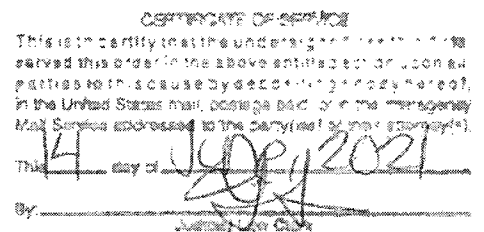 CERTIFICATE OF SERVICE
This is to certify that the undersigned has this date
served this order in the above entitled action upon all
parties to this cause by depositing a copy hereof,
in the United States mail, postage paid, or in the
Mail Service addressed to the party(ies) or their attorney(s).
This 14 day of 2021
By: